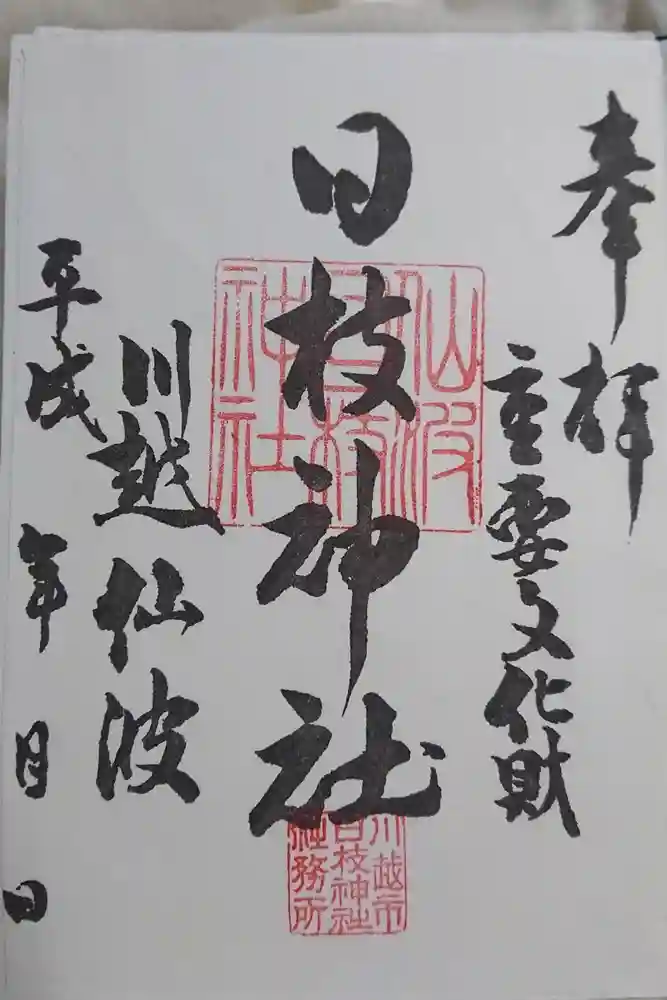 奉拝
重要文化財
日枝神社
仙波
日枝
神社
川越市
日枝神社
社務所
川越仙波
平成 年 月 日